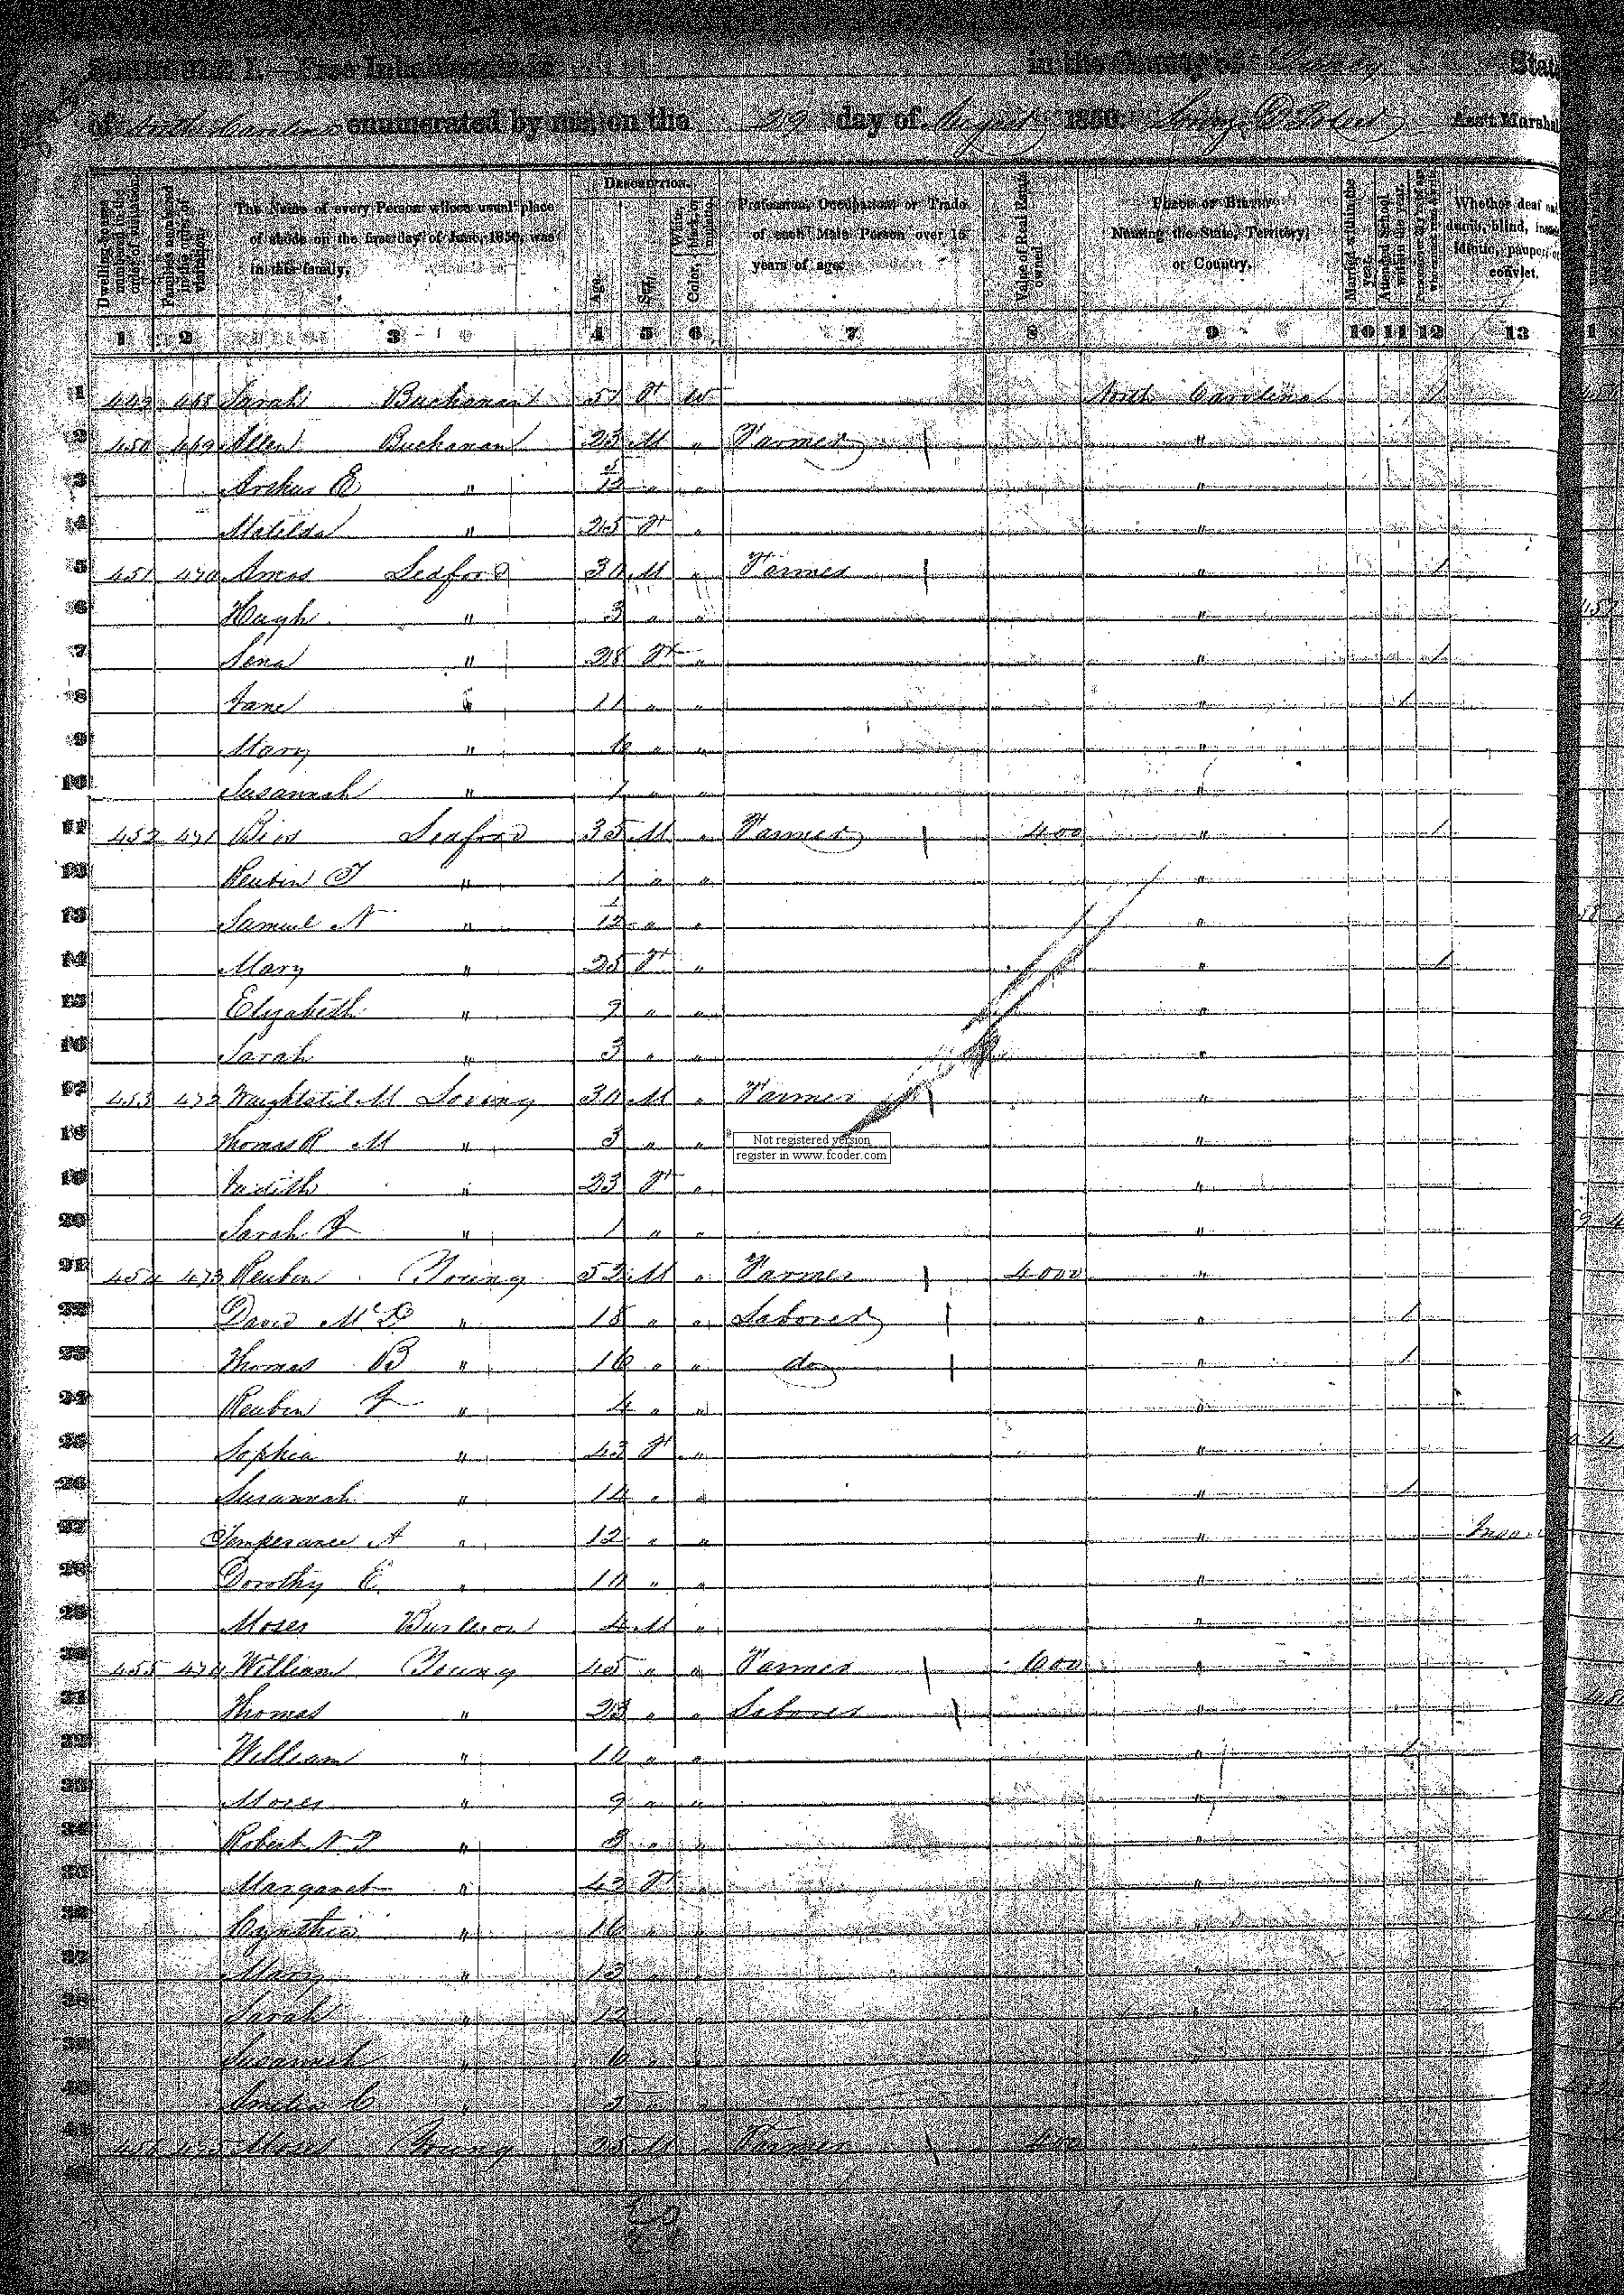 SCHEDULE I.—Free Inhabitants in in the County of Yancey State
of North Carolina enumerated by me, on the 29 day of August 1850. Ass't Marshal
Dwelling-houses numbered in the order of visitation.
Families numbered in the order of visitation.
The Name of every Person whose usual place of abode on the first day of June, 1850, was in this family.
DESCRIPTION.
Age.
Sex.
Color, White, black, or mulatto.
Profession, Occupation, or Trade of each Male Person over 15 years of age.
Value of Real Estate owned
PLACE OF BIRTH. Naming the State, Territory, or Country.
Married within the year.
Attended School within the year.
Whether deaf and dumb, blind, insane, idiotic, pauper, or convict.
1 2 3 4 5 6 7 8 9 10 11 12 13
1 449 468 Sarah Buchanan 57 F W North Carolina 1
2 450 469 Allen Buchanan 23 M " Farmer "
3 E " 5/12 " " "
4 Matilda " 25 F " "
5 451 470 Amos Ledford 30 M " Farmer 1
6 Hugh " 3 " " "
7 Lena " 28 F " " 1
8 Jane " 11 " " " 1
9 Mary " 6 " " "
10 Susannah " 1 " " "
11 452 471 Leaford 35 M " Farmer 400 " 1
12 Reubin " 1 " " "
13 Samuel N " 1/12 " " "
14 Mary " 25 F " " 1
15 Elizabeth " " " "
16 Sarah " 3 " " "
17 453 472 Waightstil M Loving 30 M " Farmer "
18 Thomas R M " 3 " " "
Not registered version
register in www.fcoder.com
19 Judith " 23 F " "
20 Sarah J " 1 " " "
21 454 473 Reuben Young 52 M " Farmer 4000 "
22 David McD " 18 " " Laborer " 1
23 Thomas B " 16 " " do " 1
24 Reubin F " 4 " " "
25 Sophia " 43 F " "
26 Susannah " 14 " " " 1
27 Temperance A " 12 " " "
28 Dorothy E. " 10 " " "
29 Moses Burleson 4 M " "
30 455 474 William Young 45 " " Farmer 600 "
31 Thomas " 23 " " Laborer "
32 William " 10 " " " 1
33 Moses " 9 " " "
34 Robert N " 3 " " "
35 Margaret " 42 F " "
36 Cynthia " 16 " " "
37 Mary " 13 " "
38 Sarah " 12 " "
39 Susannah " 6 " "
40 C "
41 456 475 Moses Young 25 M " Farmer 400 "